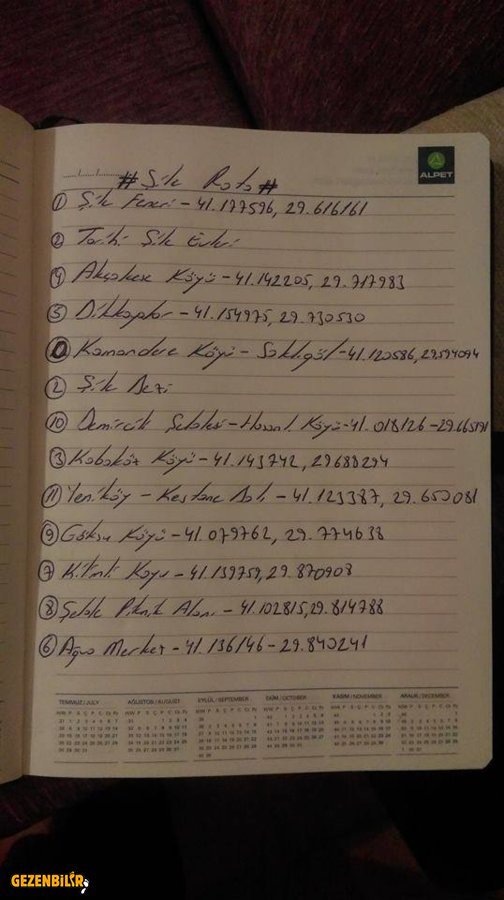 ALPET
# Şile Rota #
① Şile Feneri - 41.177596, 29.616161
② Tarihi Şile Evleri
④ Akçakese Köyü - 41.142205, 29.717983
⑤ Dikkaplar - 41.154975, 29.730530
Kömandere Köyü - Saklıgöl - 41.120586, 29.594094
② Şile
⑩ Şelalesi - Hasanlı Köyü - 41.018126 - 29.665191
③ Kabakoz Köyü - 41.143742, 29.688294
⑪ Yeniköy - Kestane - 41.123387, 29.650081
⑨ Göksu Köyü - 41.079762, 29.774638
⑦ Kilimli Koyu - 41.139759, 29.870908
⑧ Şelale Piknik Alanı - 41.102815, 29.814788
⑥ Ağva Merkez - 41.136146 - 29.840241
TEMMUZ / JULY AĞUSTOS / AUGUST EYLÜL / SEPTEMBER EKİM / OCTOBER KASIM / NOVEMBER ARALIK / DECEMBER
GEZENBİLİR